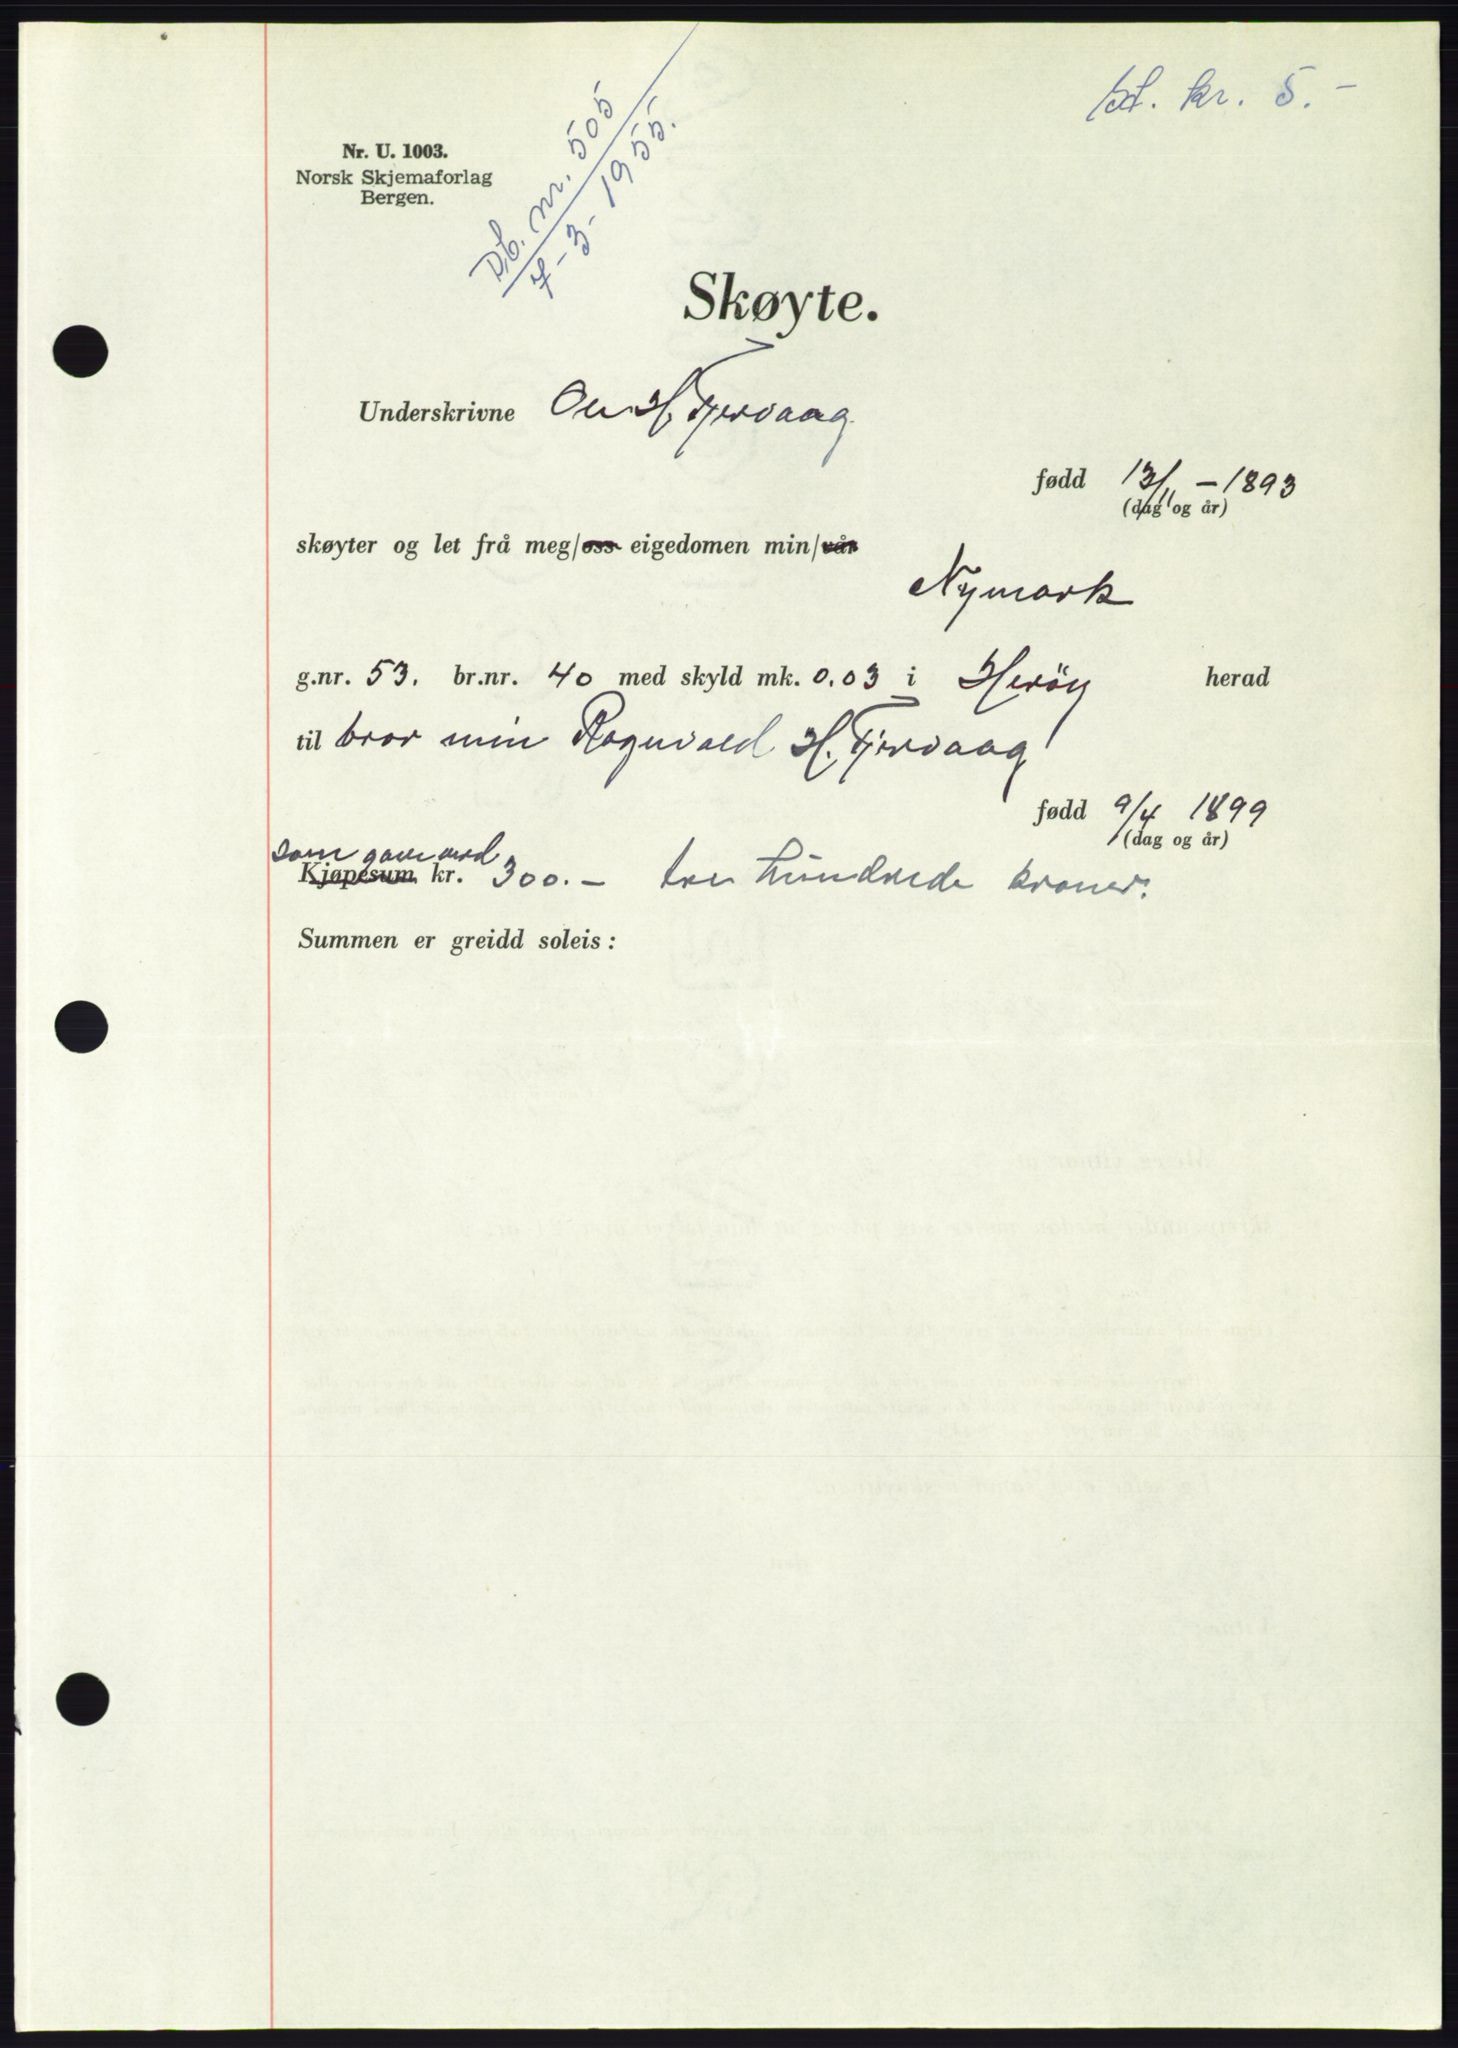 st. kr. 5.-
Db. nr. 505
7-3-1955.
Nr. U. 1003.
Norsk Skjemaforlag
Bergen.
Skøyte.
Underskrivne Ole H. Tjervaag
fødd 13/11 - 1893
(dag og år)
skøyter og let frå meg/oss eigedomen min/vår
Nymark
g.nr. 53. br.nr. 40 med skyld mk. 0.03 i Heröy herad
til bror min Ragnvald H. Tjervaag
fødd 9/4 1899
(dag og år)
som gave verd
Kjøpesum kr. 300.- tre hundrede kroner.
Summen er greidd soleis: